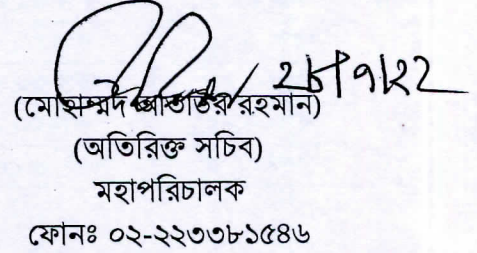 ২৮/৭/২২
(মোহাম্মদ রহমান)
(অতিরিক্ত সচিব)
মহাপরিচালক
ফোনঃ ০২-২২৩৩৮১৫৪৬